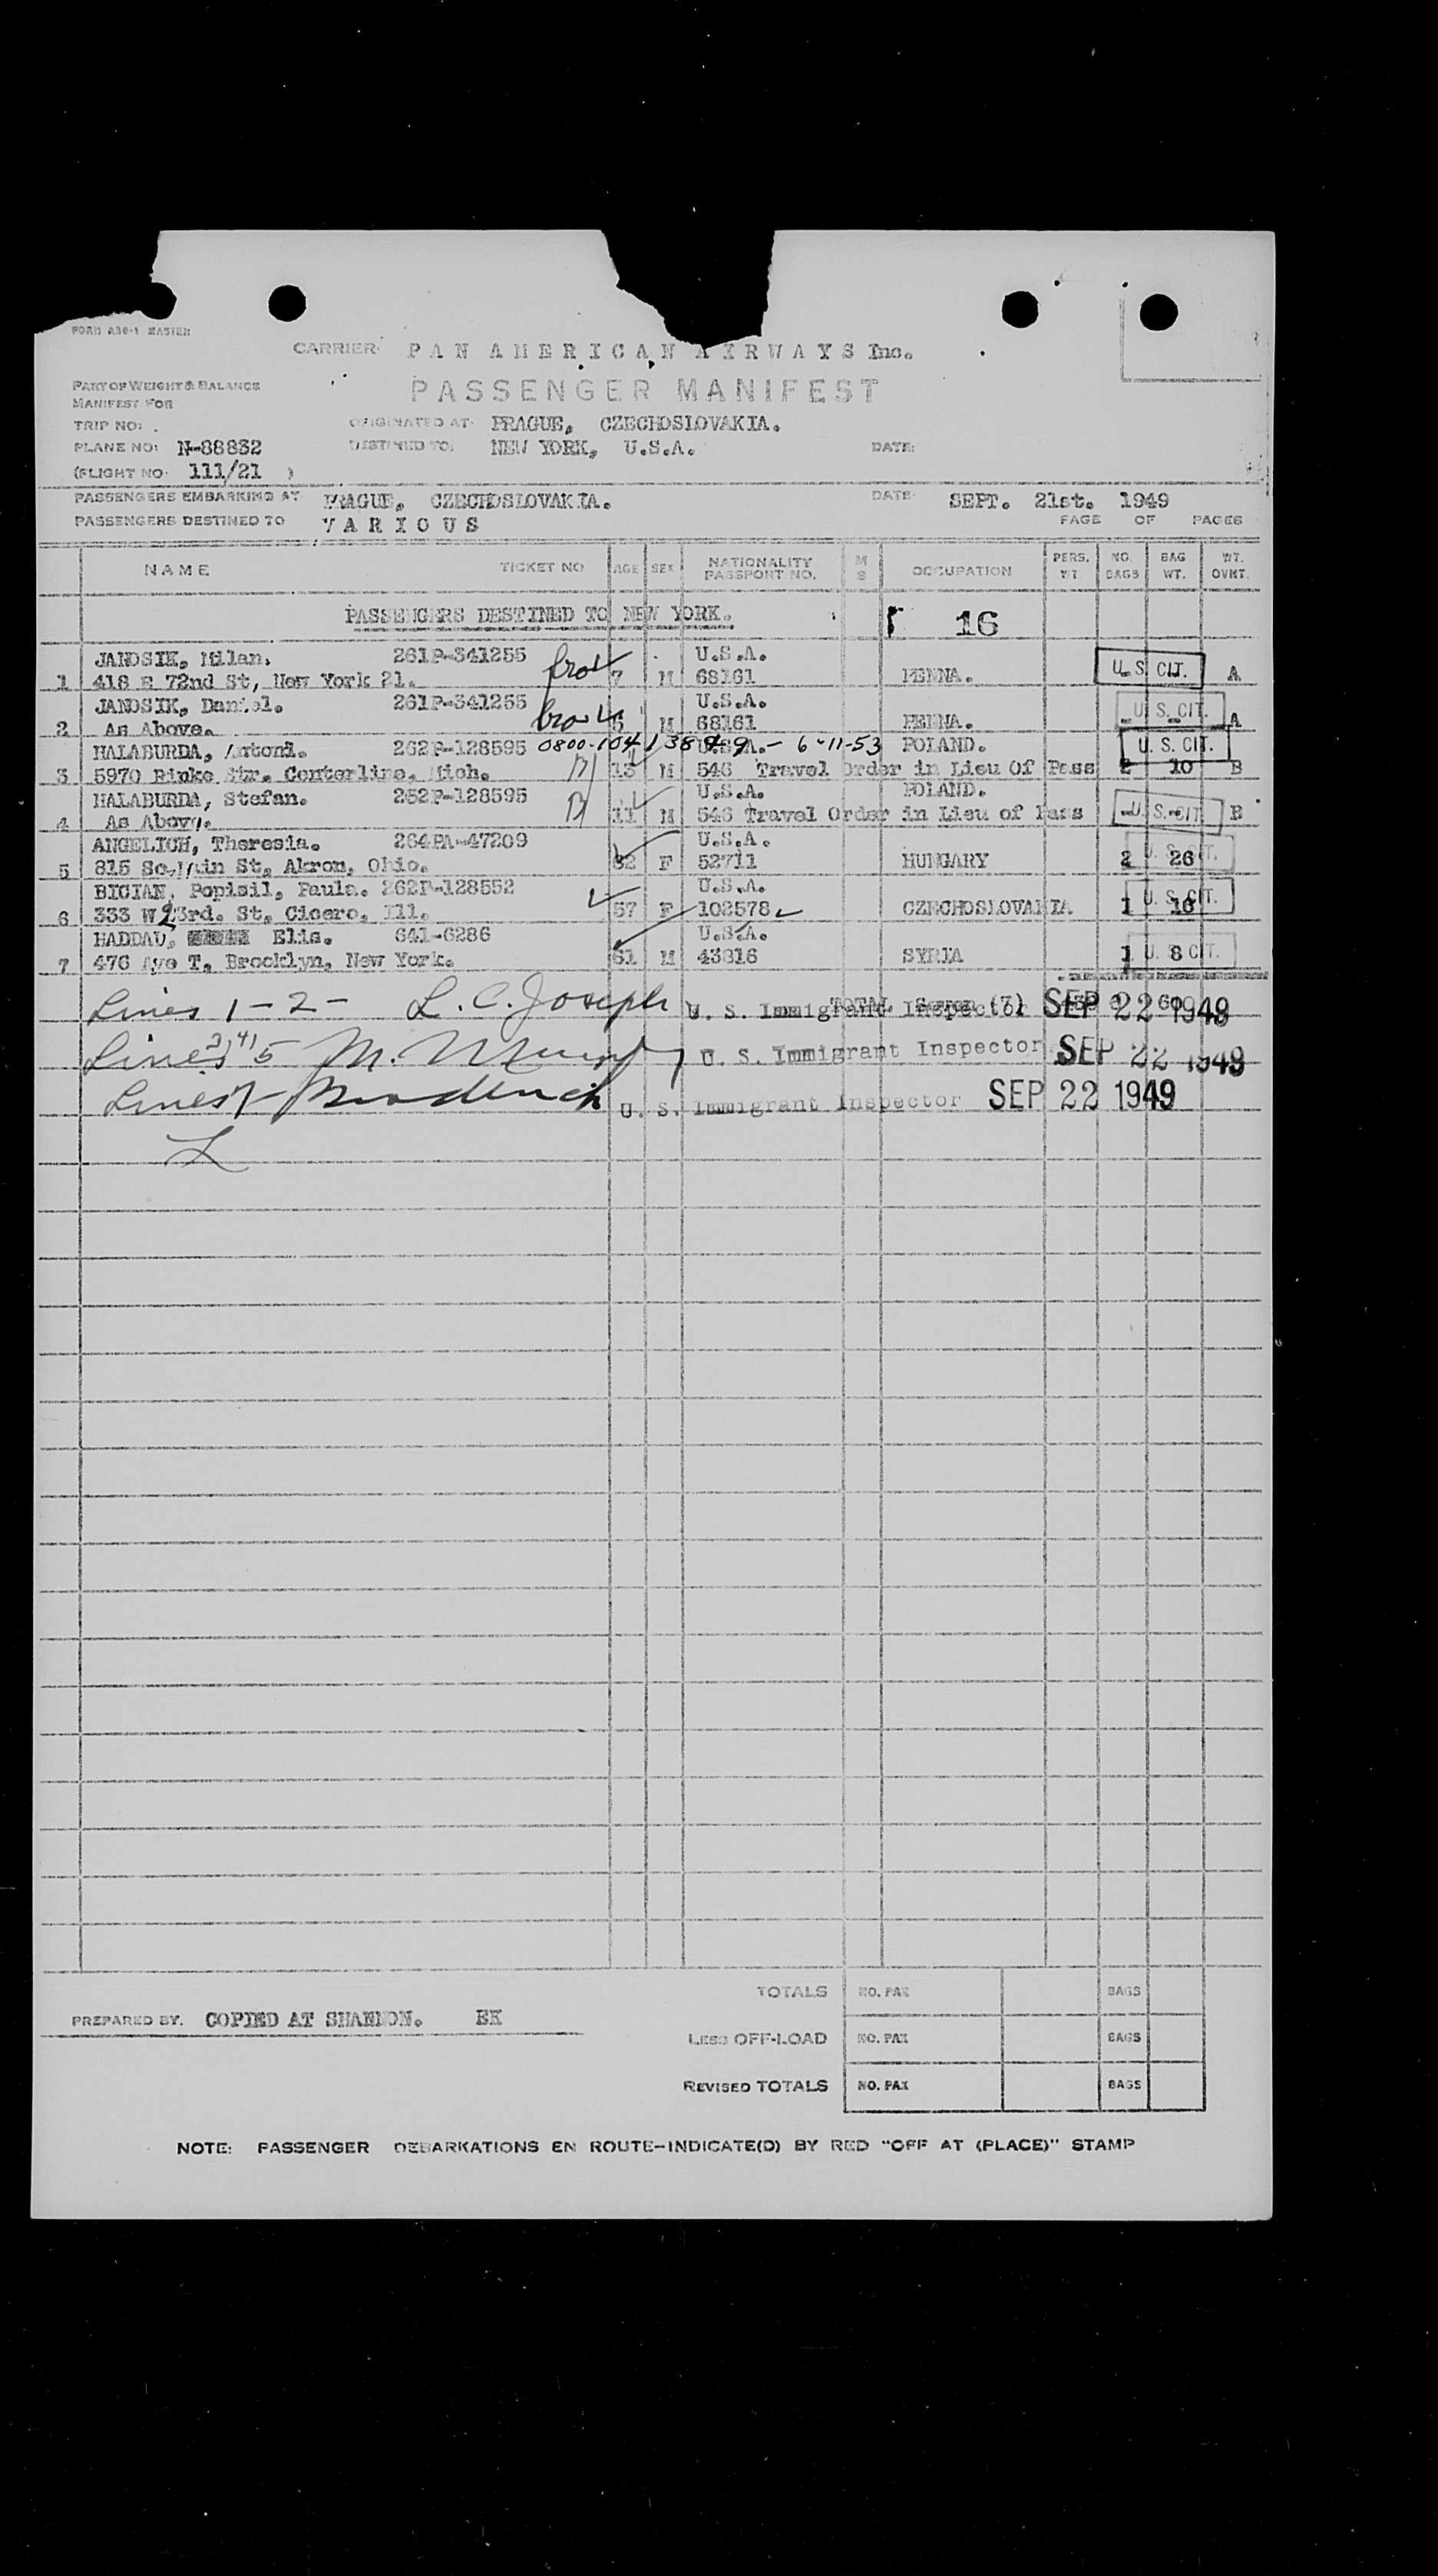 FORM A36-1 MASTER
CARRIER: PAN AMERICAN AIRWAYS Inc.
PASSENGER MANIFEST
PART OF WEIGHT & BALANCE
MANIFEST FOR
TRIP NO:
ORIGINATED AT: PRAGUE, CZECHOSLOVAKIA.
PLANE NO: N-88832 DESTINED TO: NEW YORK, U.S.A. DATE:
(FLIGHT NO: 111/21 )
PASSENGERS EMBARKING AT PRAGUE, CZECHOSLOVAKIA. DATE: SEPT. 21st. 1949
PASSENGERS DESTINED TO VARIOUS PAGE OF PAGES
NAME TICKET NO AGE SEX NATIONALITY PASSPORT NO. M S OCCUPATION PERS. WT. NO. BAGS BAG WT. WT. OVHT.
PASSENGERS DESTINED TO NEW YORK. 16
JANOSIK, Milan. 261P-341255 U.S.A.
1 418 E 72nd St, New York 21. 7 M 68161 PENNA. U.S. CIT. A
JANOSIK, Daniel. 261P-341255 U.S.A.
2 As Above. 5 M 68161 PENNA. U.S. CIT. A
HALABURDA, Antoni. 262P-128595 0800-104138 U.S.A. - 6-11-53 POLAND. U. S. CIT.
3 5970 Rinke Str. Centerline, Mich. 13 M 546 Travel Order in Lieu Of Pass 2 10 B
HALABURDA, Stefan. 262P-128595 U.S.A. POLAND.
4 As Above. 11 M 546 Travel Order in Lieu of Pass U.S. CIT. B
ANGELICH, Theresia. 264PA-47209 U.S.A.
5 815 So. Main St, Akron, Ohio. 62 F 52711 HUNGARY 2 26 U.S. CIT.
BICIAN, Popisil, Paula. 262P-128552 U.S.A.
6 333 W 23rd. St, Cicero, Ill. 57 F 102578 CZECHOSLOVAKIA 1 16 U.S. CIT.
HADDAD, Elia. 641-6286 U.S.A.
7 476 Ave T, Brooklyn, New York. 61 M 43816 SYRIA 1 8 U.S. CIT.
TOTAL Seven (7) 60
Lines 1-2- L. C. Joseph U. S. Immigrant Inspector SEP 22 1949
Lines 3, 4, 5 M. U. S. Immigrant Inspector SEP 22 1949
Lines U. S. Immigrant Inspector SEP 22 1949
TOTALS NO. PAX BAGS
PREPARED BY. COPIED AT SHANNON. EK
LESS OFF-LOAD NO. PAX BAGS
REVISED TOTALS NO. PAX BAGS
NOTE: PASSENGER DEBARKATIONS EN ROUTE-INDICATE(D) BY RED "OFF AT (PLACE)" STAMP